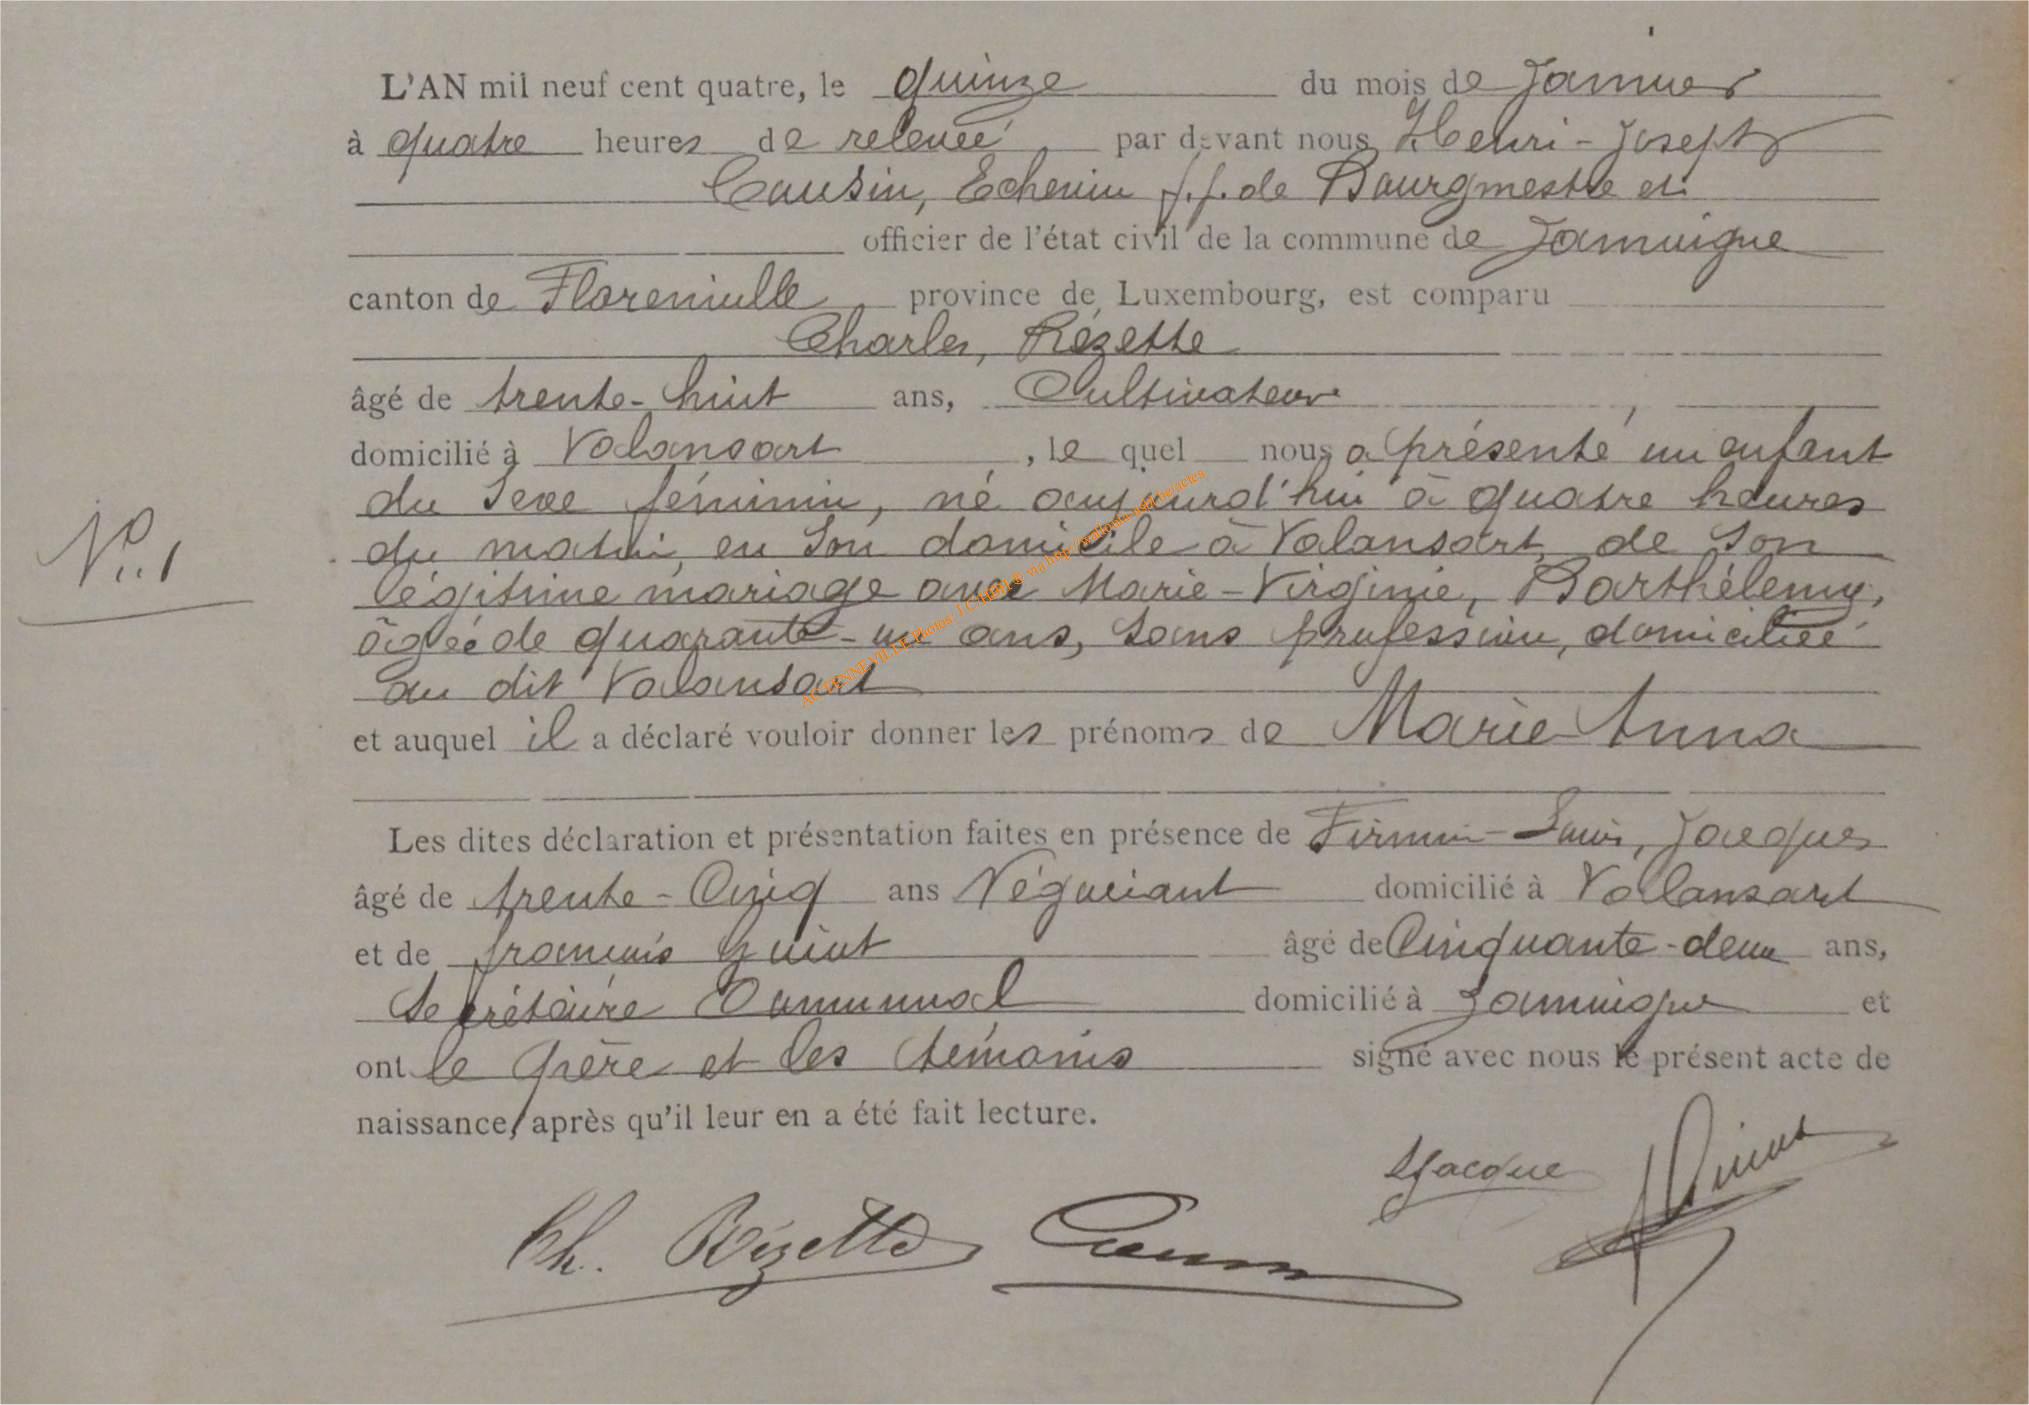 L'AN mil neuf cent quatre, le quinze du mois de Janvier
à quatre heures de relevée par devant nous Henri-Joseph
Cousin, Echevin f.f. de Bourgmestre et
officier de l'état civil de la commune de Jamoigne
canton de Florenville province de Luxembourg, est comparu
Charles, Rézette
âgé de trente-huit ans, Cultivateur,
domicilié à Valansart, le quel nous a présenté un enfant
du Sexe féminin, né aujourd'hui à quatre heures
N° 1
du matin, en Son domicile à Valansart, de Son
légitime mariage avec Marie-Virginie, Barthélemy,
âgée de quarante-un ans, Sans profession, domiciliée
au dit Valansart
et auquel il a déclaré vouloir donner les prénoms de Marie Anna
Les dites déclaration et présentation faites en présence de Firmin-Louis, Jacques
âgé de trente-Cinq ans Négociant domicilié à Valansart
et de françois Guiot âgé de Cinquante-deux ans,
Secrétaire Communal domicilié à Jamoigne et
ont le père et les témoins signé avec nous le présent acte de
naissance, après qu'il leur en a été fait lecture.
Jacque
Ch. Rézette Cousin